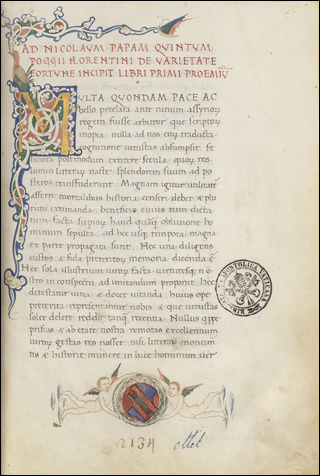 AD NICOLAVM PAPAM QVINTVM
POGGII FLORENTINI DE VARIETATE
FORTVNE INCIPIT LIBRI PRIMI PROEMIV̄
MVLTA QVONDAM PACE AC
bello preclara ante ninum assyriorꝝ
regem fuisse arbitror que scriptorꝝ
inopia nulla ad nos eorꝝ traducta
cognitione uetustas absumpsit fe
liciora postmodum extitere secula quorꝝ res
lumen litterarꝝ nacte splendorem suum ad po
steros transfuderunt Magnam igitur utilitatē
afferre mortalibus historia censeri debet & plu
rimi existimanda beneficio cuius tum dicta
tum facta superiorꝝ haud quaꝗ obliuione ho
minum sepulta ad hec usꝗ tempora magna
ex parte propagata sunt Hec una diligens
custos & fida preteritorꝝ memoria dicenda ē
Hec sola illustrium uirorꝝ facta uirtutesꝗ n̄o
stro in conspectu ad imitandum proponit hec
detestatur uitia & docet uitanda huius ope
preterita representantur nobis & que uetustas
solet delere reddit tanꝗ recentia Nullus
priscas & ab etate nostra remotas excellentium
uirorꝝ gestas res nosset nisi litterarꝝ monum
tis & historie munere in lucē hominum
BIBLIOTHECA APOSTOLICA VATICANA
2134 ottob